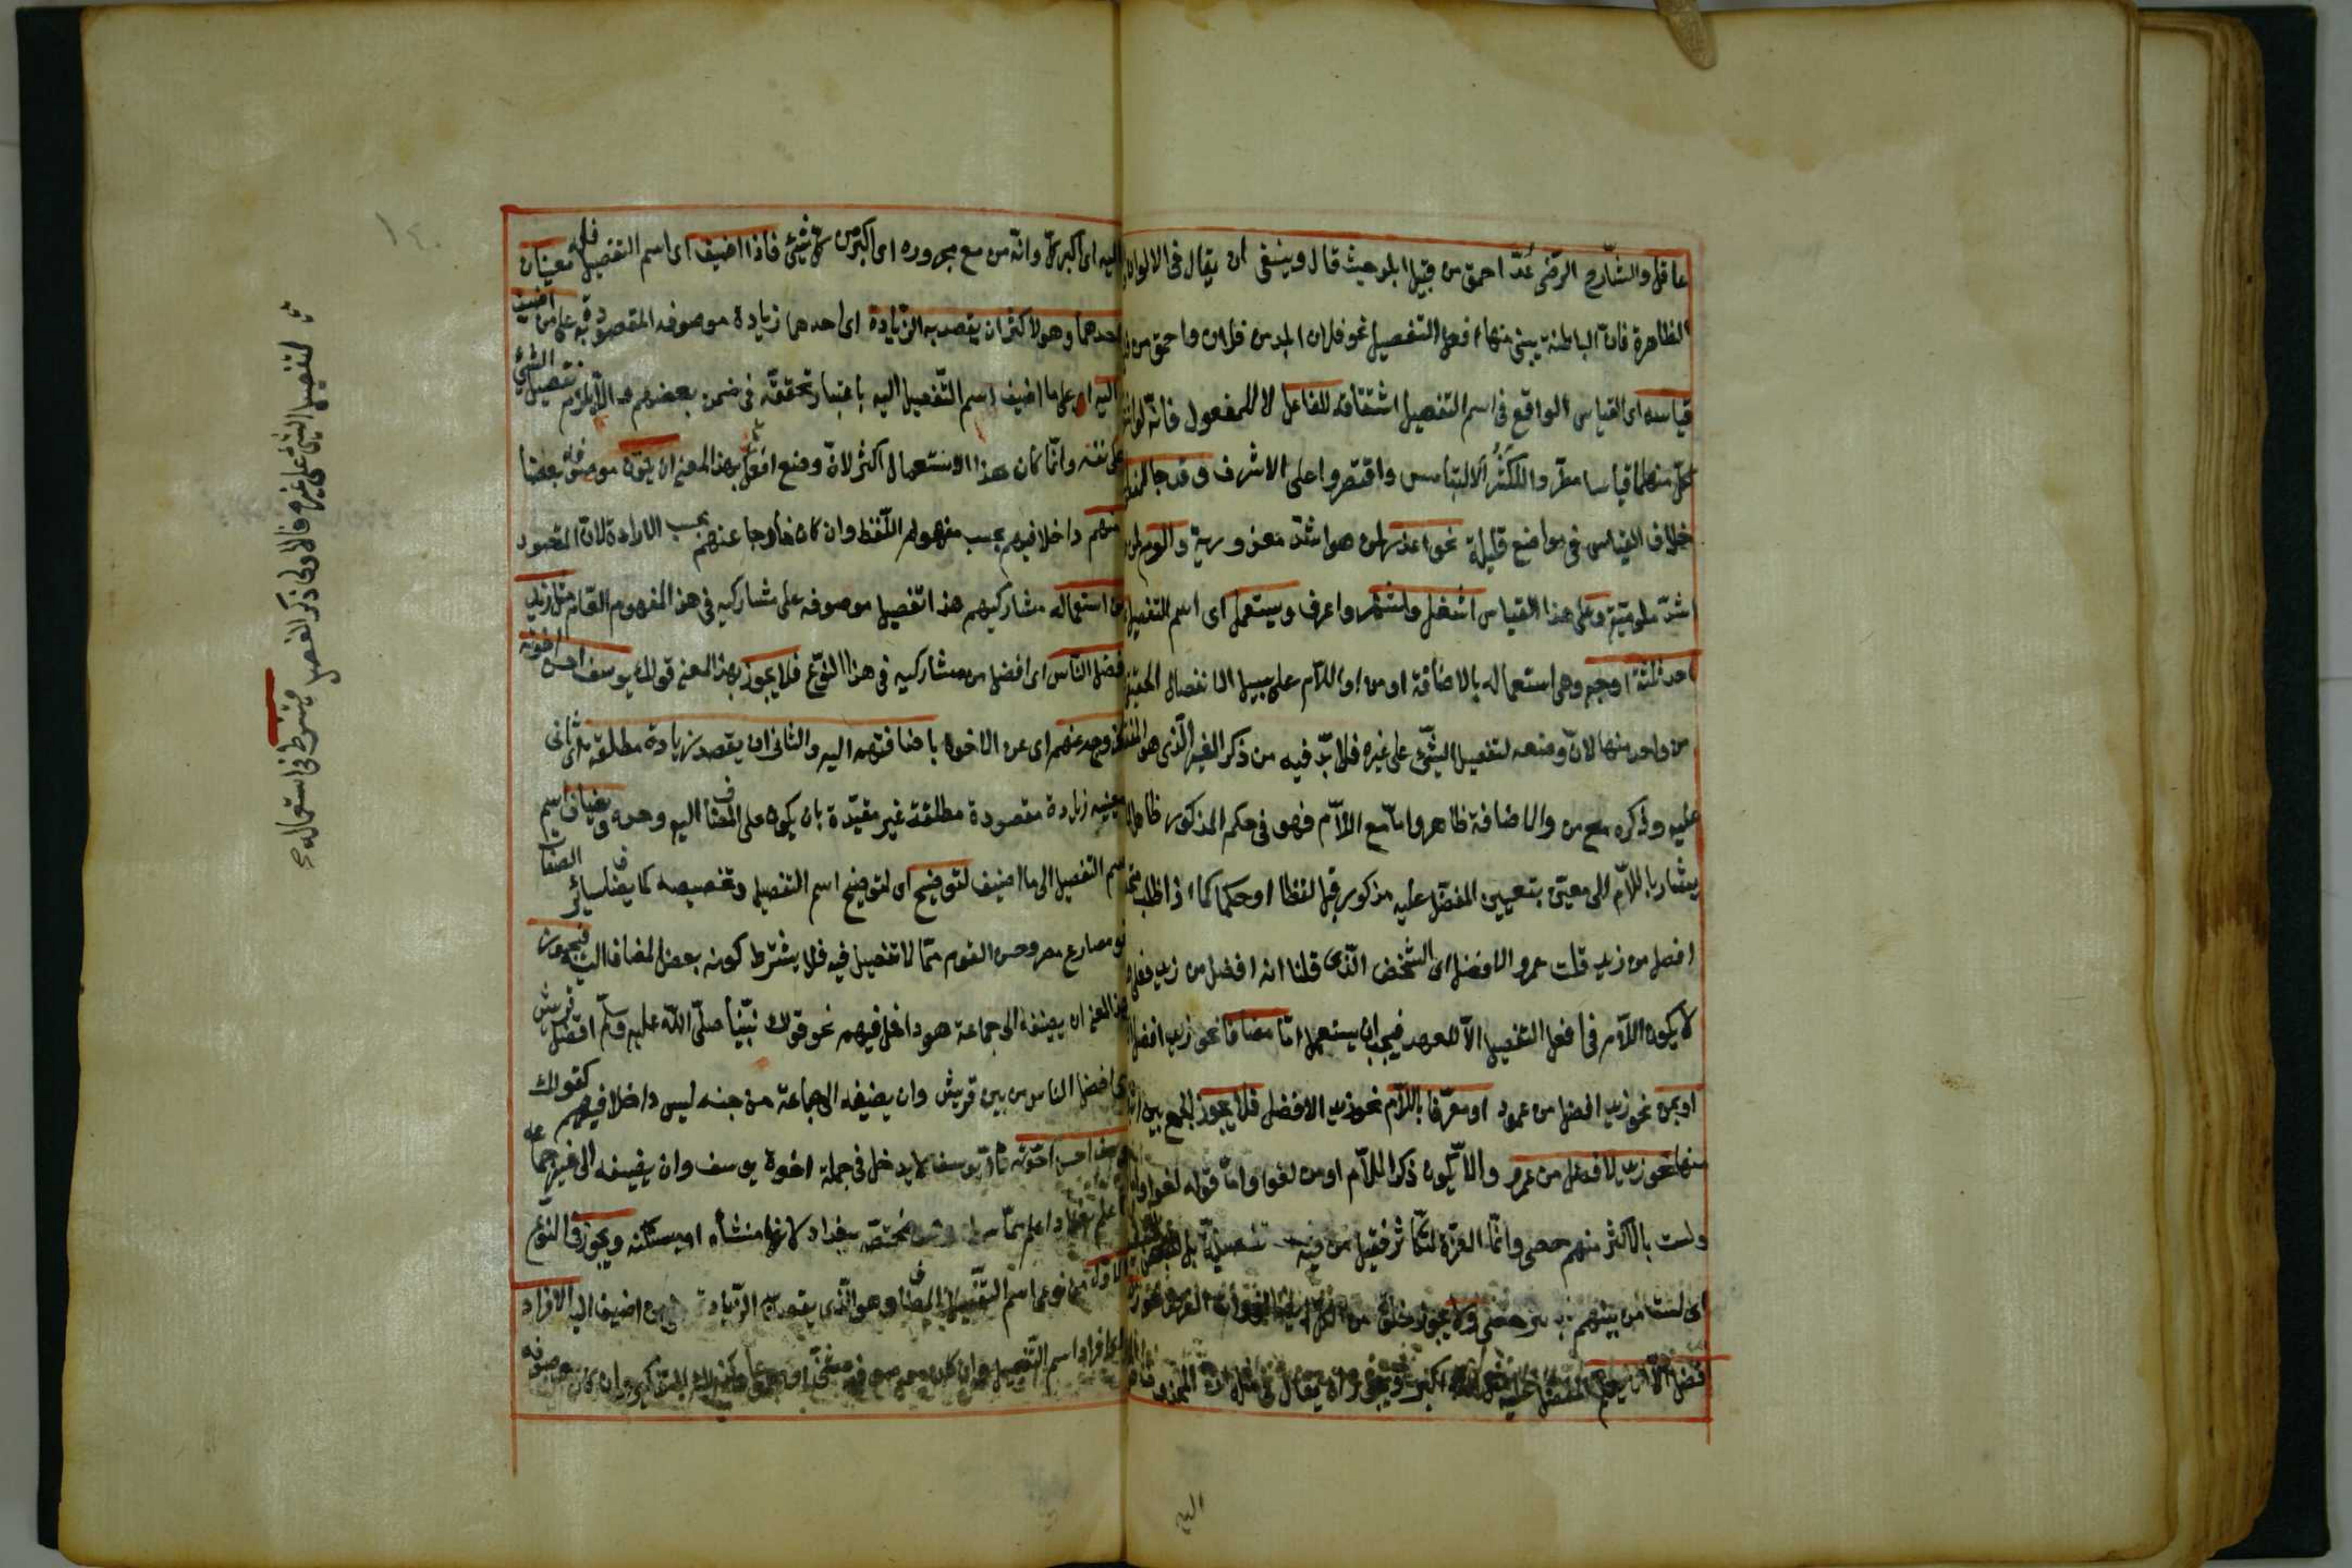 عاقل والشارح الرضى عدّ احمق من قبيل ابلد حيث قال وينبغى ان يقال فى الالوان
الظاهرة فان الباطنة يبنى منها افعل التفصيل نحو فلان ابلد من فلان واحمق من
قياسه اى القياس الواقع فى اسم التفصيل اشتقاقه للفاعل لا للمفعول فانه لو
كل منهما قياسا مطردا لكثر الالتباس واقتصروا على الاشرف وقد جاء
خلاف القياس فى مواضع قليلة نحو اعذر لمن هو اشد معذورية والوم لمن
اشد ملومية وعلى هذا القياس اشغل واشهر واعرف ويستعمل اى اسم التفصيل
احد ثلثة اوجه وهى استعماله بالاضافة او من او اللام على سبيل الانفصال الحقيقى
من واحد منها لان وضعه لتفصيل الشئ على غيره فلا بد فيه من ذكر الغير الذى هو
عليه وذكره مع من والاضافة ظاهر واما مع اللام فهو فى حكم المذكور ظاهرا
يشار باللام الى معين بتعيين المفضل عليه مذكور قبل لفظا او حكما كما اذا طلب
افضل من زيد قلت عمرو الافضل اى الشخص الذى قلنا انه افضل من زيد فعلى
لا يكون اللام فى افعل التفصيل الا للعهد فيجب ان يستعمل اما مضافا نحو زيد افضل
او بمن نحو زيد افضل من عمرو او معرفا باللام نحو زيد الافضل فلا يجوز الجمع بين
منها نحو زيد الافضل من عمرو والا يكون ذكر اللام او من لغوا واما قوله
ولست بالاكثر منهم حصى وانما العزة للكاثر فقيل من فيه تفصيلية بل
اى لست من بينهم
اليه
اليه اى اكبر كل وانه من مع مجروره اى اكبر من كل شئ فاذا اضيف اى اسم التفصيل فله معنيان
احدهما وهو الاكثر ان يقصد به الزيادة اى احدهما زيادة موصوفه المقصودة به على من اضيف
اليه اى على ما اضيف اسم التفصيل اليه باعتبار تحققه فى ضمن بعضهم والا يلزم تفصيل الشئ
على نفسه وانما كان هذا الاستعمال اكثر لان وضع افعل بهذا المعنى ان يكون موصوفه بعضا
منهم داخلا فيهم بحسب مفهوم اللفظ وان كان خارجا عنهم بحسب الارادة لان المقصود
من استعماله مشاركيهم هذا تفصيل موصوفه على مشاركيه فى هذا المفهوم العام مثل زيد
افضل الناس اى افضل من مشاركيه فى هذا النوع فلا يجوز بهذا المعنى قولك يوسف احسن اخوته
لخروجه عنهم اى عن الاخوة باضافتهم اليه والثانى ان يقصد زيادة مطلقة اى ثانى
معنييه زيادة مقصودة مطلقة غير مقيدة بان يكون على المضاف اليه وحده ويضاف اسم
اسم التفصيل الى ما اضيف لتوضيح اى لتوضيح اسم التفصيل وتخصيصه كما يضاف سائر الصفات
نحو مصارع مصر وحسن القوم مما لا تفصيل فيه فلا يشترط كونه بعض المضاف اليه فيجوز
بهذا المعنى ان يضيفه الى جماعة هو داخل فيهم نحو قولك نبينا صلى الله عليه وسلم افضل قريش
اى افضل الناس من بين قريش وان يضيفه الى جماعة من جنسه ليس داخلا فيهم كقولك
يوسف احسن اخوته فان يوسف لا يدخل فى جملة اخوة يوسف وان يضيفه الى غير جماعة
نحو اعلم بغداد اى اعلم مما سواه وهو مختص ببغداد لانها منشأه او مسكنه ويجوز فى النوع
الاول من نوعى اسم التفصيل المضاف وهو الذى يقصد به الزيادة على من اضيف اليه الافراد
اى افراد اسم التفصيل وان كان موصوفه
لتفصيل الشئ على غيره فالاولى ذكر المفصل فيشترط فى استعماله
١٤٠